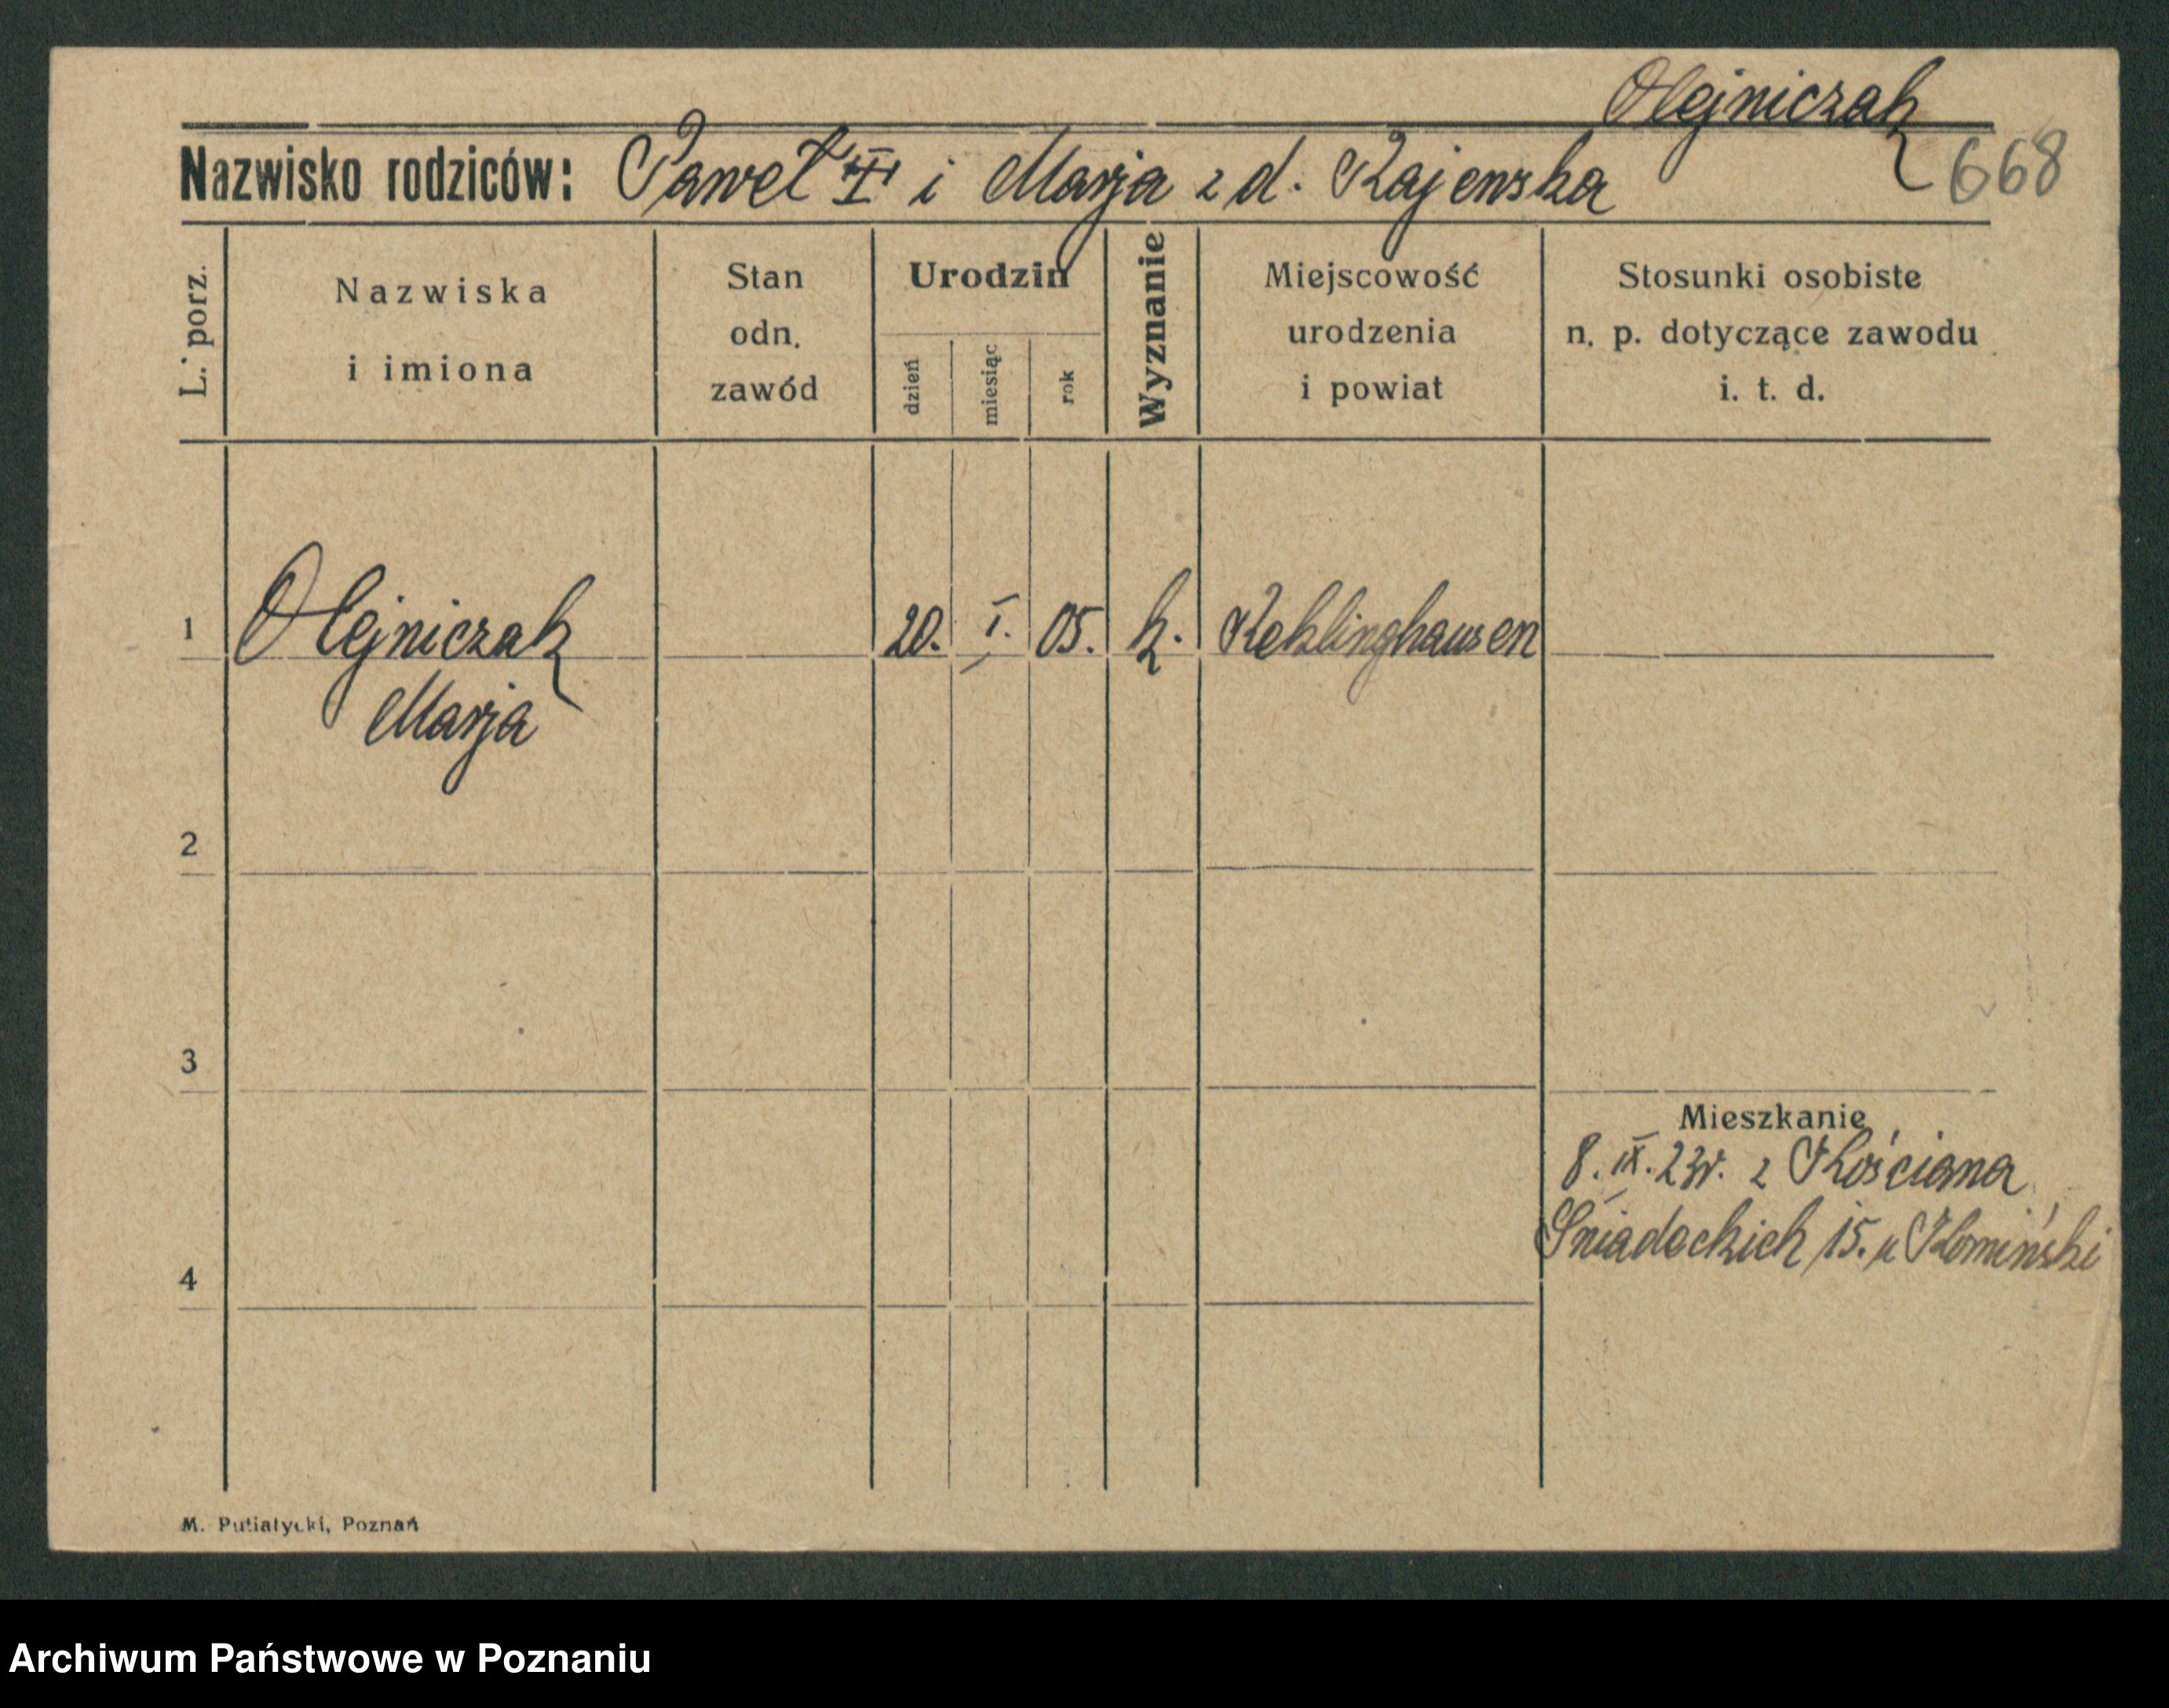 Olejniczak
Nazwisko rodziców: Paweł i Marja z d. Rajewska 668
L. porz.
Nazwiska
i imiona
Stan
odn.
zawód
Urodzin
dzień
miesiąc
rok
Wyznanie
Miejscowość
urodzenia
i powiat
Stosunki osobiste
n. p. dotyczące zawodu
i. t. d.
1 Olejniczak 20. I. 05. k. Reklinghausen
Marja
2
3
Mieszkanie
8. IX. 23r. z Kościana
Śniadeckich 15. u Komiński
4
M. Putiatycki, Poznań
Archiwum Państwowe w Poznaniu